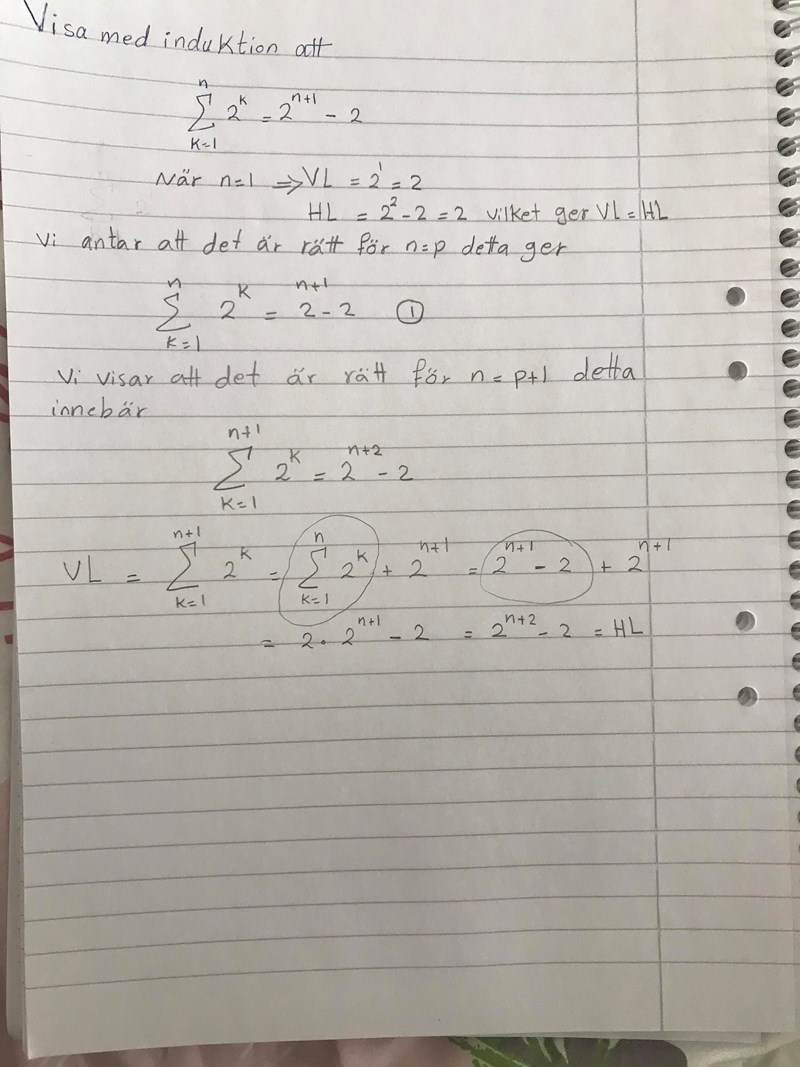 Visa med induktion att
n
∑ 2^k = 2^(n+1) - 2
k=1
När n=1 ⇒ VL = 2^1 = 2
HL = 2^2 - 2 = 2 vilket ger VL = HL
Vi antar att det är rätt för n=p detta ger
n
∑ 2^k = 2^(n+1) - 2 ①
k=1
Vi visar att det är rätt för n = p+1 detta
innebär
n+1
∑ 2^k = 2^(n+2) - 2
k=1
n+1 n
VL = ∑ 2^k = ∑ 2^k + 2^(n+1) = 2^(n+1) - 2 + 2^(n+1)
k=1 k=1
= 2·2^(n+1) - 2 = 2^(n+2) - 2 = HL